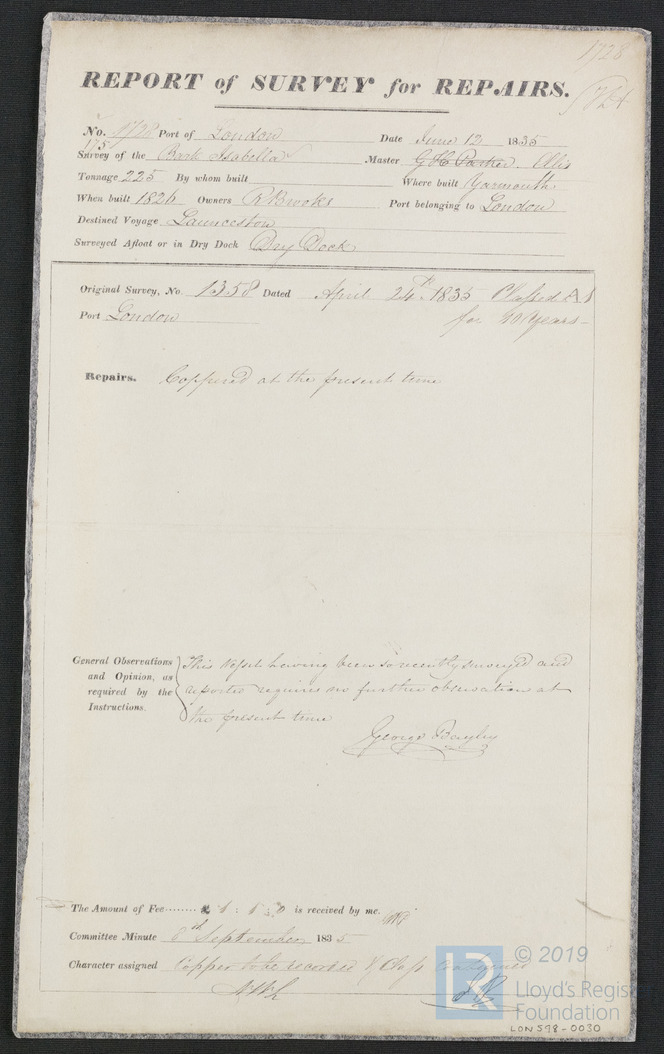 1728
REPORT of SURVEY for REPAIRS.
No. 1728 Port of London Date June 12 1835
Survey of the Bark Isabella Master G H Parker. Ellis
Tonnage 225 By whom built Where built Yarmouth
When built 1826 Owners R Brooks Port belonging to London
Destined Voyage Launceston
Surveyed Afloat or in Dry Dock Dry Dock
Original Survey, No. 1358 Dated April 24th 1835 Classed A1
Port London for 10 Years
Repairs. Coppered at the present time
General Observations and Opinion, as required by the Instructions.
This Vessel having been so recently surveyed and
reported requires no further observation at
the present time
George Bayley
The Amount of Fee ........ £ 1 : is received by me.
Committee Minute September 1835
Character assigned Copper to be recorded & Class continued
© 2019
LR
Lloyd's Regis
Foundation
LON598-0030